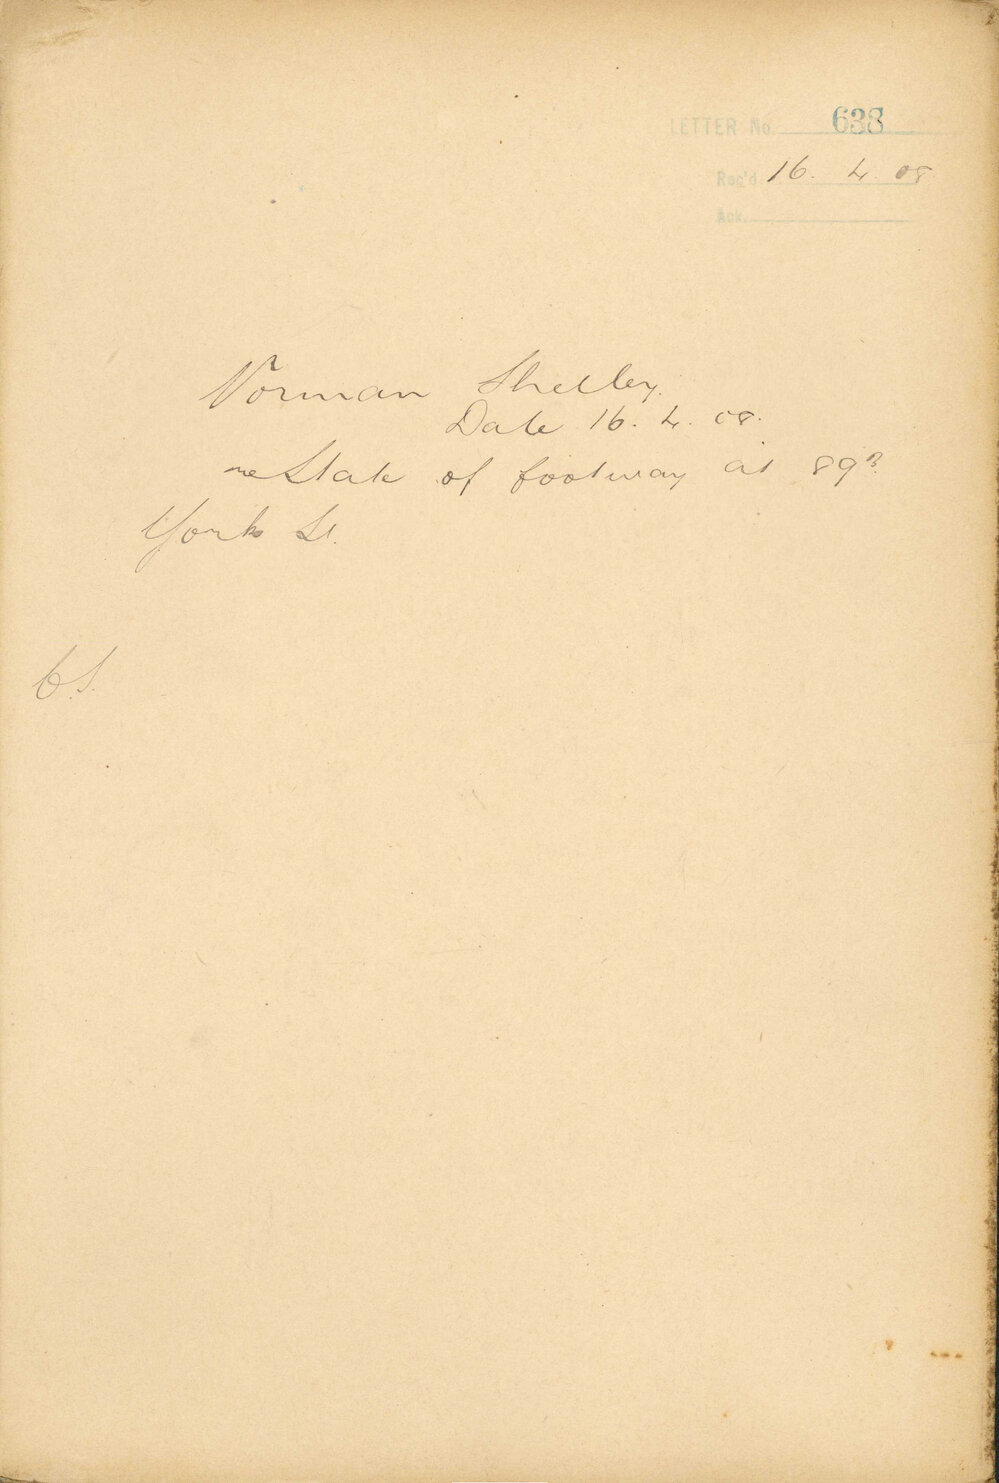 LETTER No. 638
Rec'd 16. 4. 08
Ack.
Norman Shelley.
Date 16. 4. 08.
re State of footway at 893
York St.
C.S.